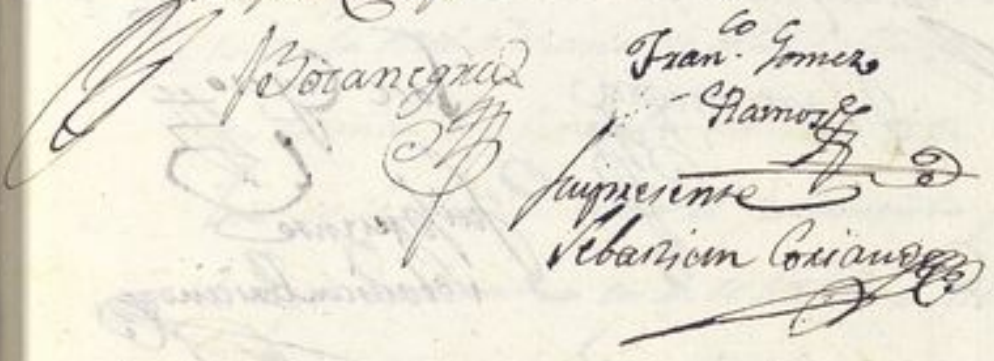 Bocanegra
Fran.co Gomez
Ramos
fui presente
Sebastian Coriano